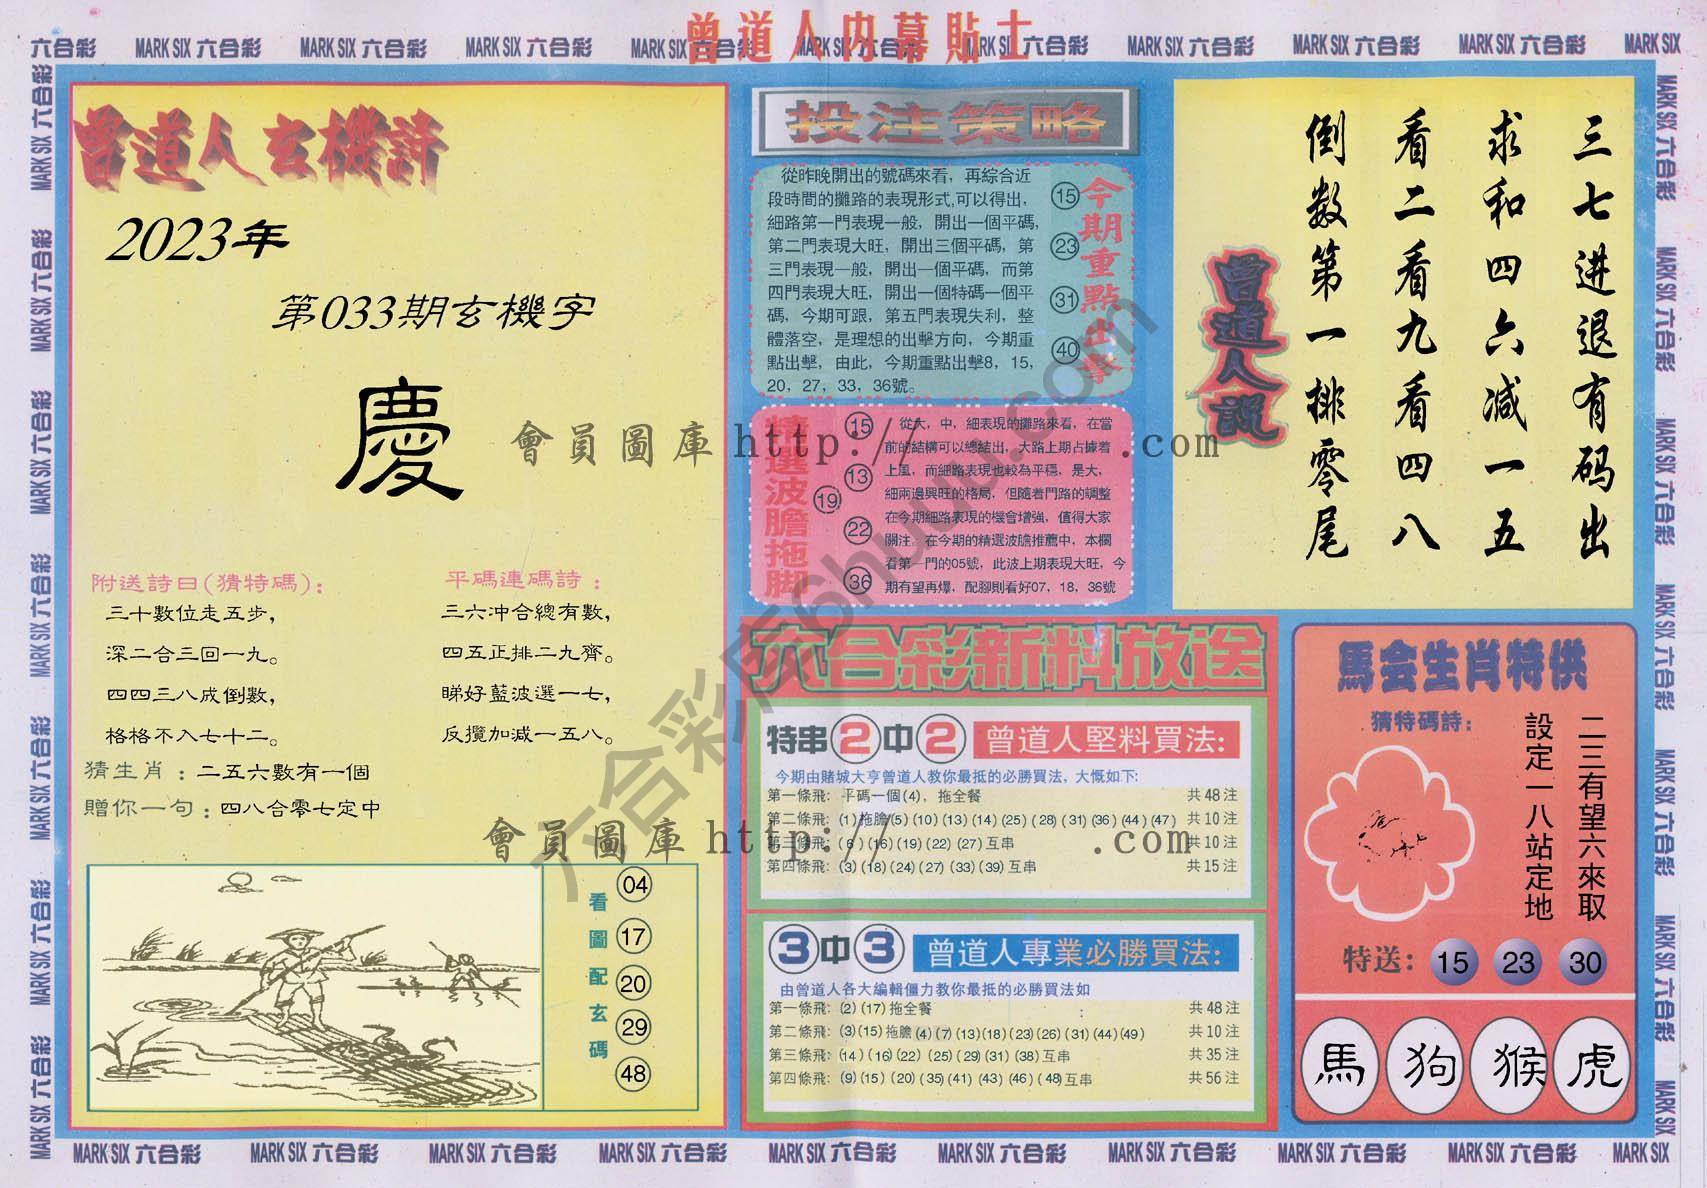 曾道人内幕貼士
六合彩 MARK SIX 六合彩 MARK SIX 六合彩 MARK SIX 六合彩 MARK SIX 六合彩 MARK SIX 六合彩 MARK SIX 六合彩 MARK SIX 六合彩 MARK SIX 六合彩 MARK SIX 六合彩 MARK SIX
曾道人玄機詩
2023年
第033期玄機字
慶
附送詩曰(猜特碼):
三十數位走五步,
深二合三回一九。
四四三八成倒數,
格格不入七十二。
平碼連碼詩:
三六冲合總有數,
四五正排二九齊。
睇好藍波選一七,
反攬加減一五八。
猜生肖:二五六數有一個
贈你一句:四八合零七定中
看圖配玄碼
04
17
20
29
48
投注策略
從昨晚開出的號碼來看，再綜合近
段時間的攤路的表現形式,可以得出，
細路第一門表現一般，開出一個平碼，
第二門表現大旺，開出三個平碼，第
三門表現一般，開出一個平碼，而第
四門表現大旺，開出一個特碼一個平
碼，今期可跟，第五門表現失利，整
體落空，是理想的出擊方向，今期重
點出擊，由此，今期重點出擊8，15，
20，27，33，36號。
今期重點出擊
15
23
31
40
精選波膽拖脚
15
13
19
22
36
從大，中，細表現的攤路來看，在當
前的結構可以總結出，大路上期占據着
上風，而細路表現也較為平穩，是大，
細兩邊興旺的格局，但隨着門路的調整
在今期細路表現的機會增強，值得大家
關注。在今期的精選波膽推薦中，本欄
看第一門的05號，此波上期表現大旺，今
期有望再爆，配腳則看好07，18，36號
曾道人説
三七进退有码出
求和四六减一五
看二看九看四八
倒数第一排零尾
六合彩新料放送
特串2中2 曾道人堅料買法:
今期由賭城大亨曾道人教你最抵的必勝買法，大慨如下:
第一條飛: 平碼一個(4)，拖全餐 共48注
第二條飛: (1)拖膽(5)(10)(13)(14)(25)(28)(31)(36)(44)(47) 共10注
第三條飛: (6)(16)(19)(22)(27)互串 共10注
第四條飛: (3)(18)(24)(27)(33)(39)互串 共15注
3中3 曾道人專業必勝買法:
由曾道人各大編輯僵力教你最抵的必勝買法如
第一條飛: (2)(17)拖全餐 共48注
第二條飛: (3)(15)拖膽(4)(7)(13)(18)(23)(26)(31)(44)(49) 共10注
第三條飛: (14)(16)(22)(25)(29)(31)(38)互串 共35注
第四條飛: (9)(15)(20)(35)(41)(43)(46)(48)互串 共56注
馬会生肖特供
猜特碼詩:
二三有望六來取
設定一八站定地
特送: 15 23 30
馬 狗 猴 虎
會員圖庫 http:// .com
會員圖庫 http:// .com
六合彩库6huuu.com
MARK SIX 六合彩 MARK SIX 六合彩 MARK SIX 六合彩 MARK SIX 六合彩 MARK SIX 六合彩 MARK SIX 六合彩 MARK SIX 六合彩 MARK SIX 六合彩 MARK SIX 六合彩 MARK SIX